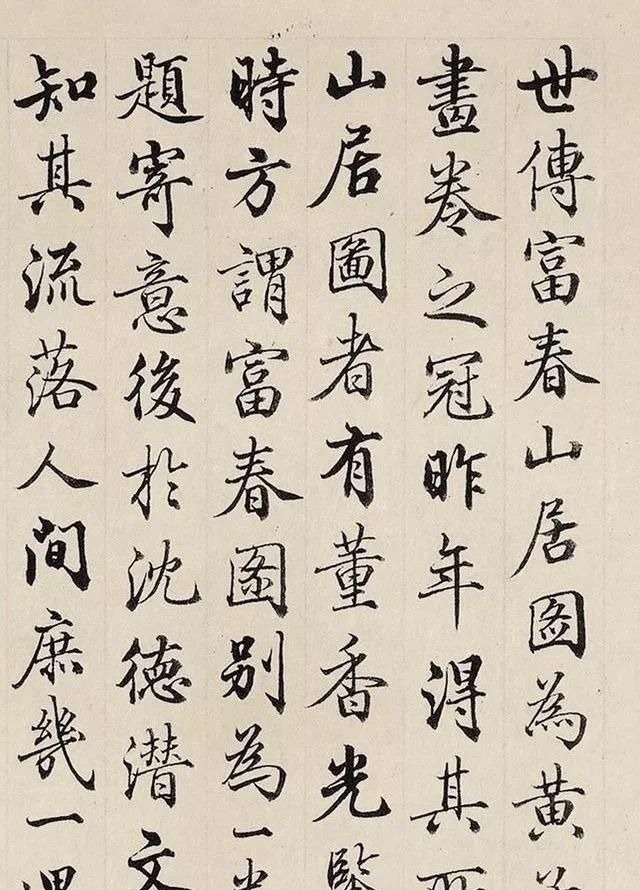 世傳富春山居图為黄
畫卷之冠昨年得其
山居圖者有董香光
時方謂富春图别為一
題寄意後於沈徳潜文
知其流落人間庶幾一